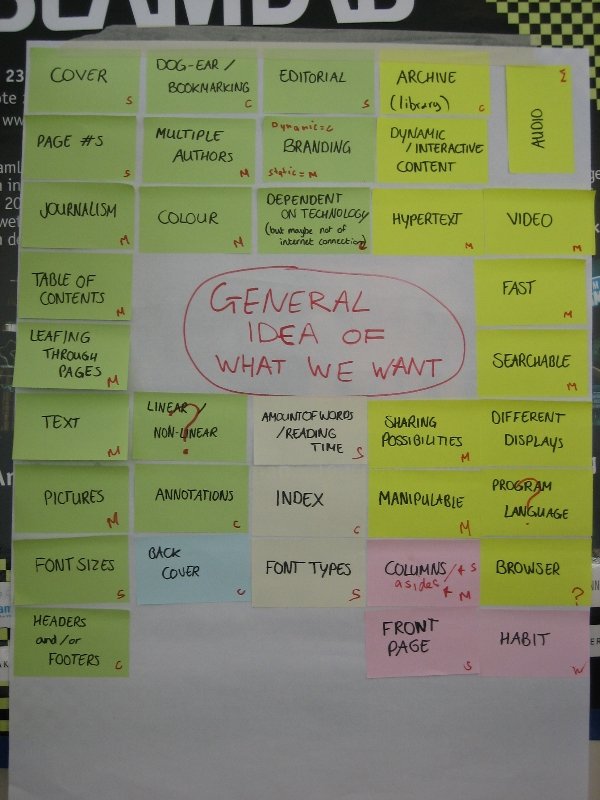 COVER
S
DOG-EAR /
BOOKMARKING
C
EDITORIAL
S
ARCHIVE
(library)
C
AUDIO
PAGE #S
S
MULTIPLE
AUTHORS
M
Dynamic = C
BRANDING
static = M
DYNAMIC
/ INTERACTIVE
CONTENT
JOURNALISM
M
COLOUR
M
DEPENDENT
ON TECHNOLOGY
(but maybe not of
internet connection)
HYPERTEXT
M
VIDEO
M
TABLE OF
CONTENTS
M
GENERAL
IDEA OF
WHAT WE WANT
FAST
M
LEAFING
THROUGH
PAGES
M
SEARCHABLE
M
TEXT
M
LINEAR /
NON-LINEAR
?
AMOUNT OF WORDS
/ READING
TIME
S
SHARING
POSSIBILITIES
M
DIFFERENT
DISPLAYS
PICTURES
M
ANNOTATIONS
C
INDEX
C
MANIPULABLE
M
PROGRAM
LANGUAGE
?
FONT SIZES
S
BACK
COVER
C
FONT TYPES
S
COLUMNS / + S
asides + M
BROWSER
?
HEADERS
and/or
FOOTERS
C
FRONT
PAGE
S
HABIT
W